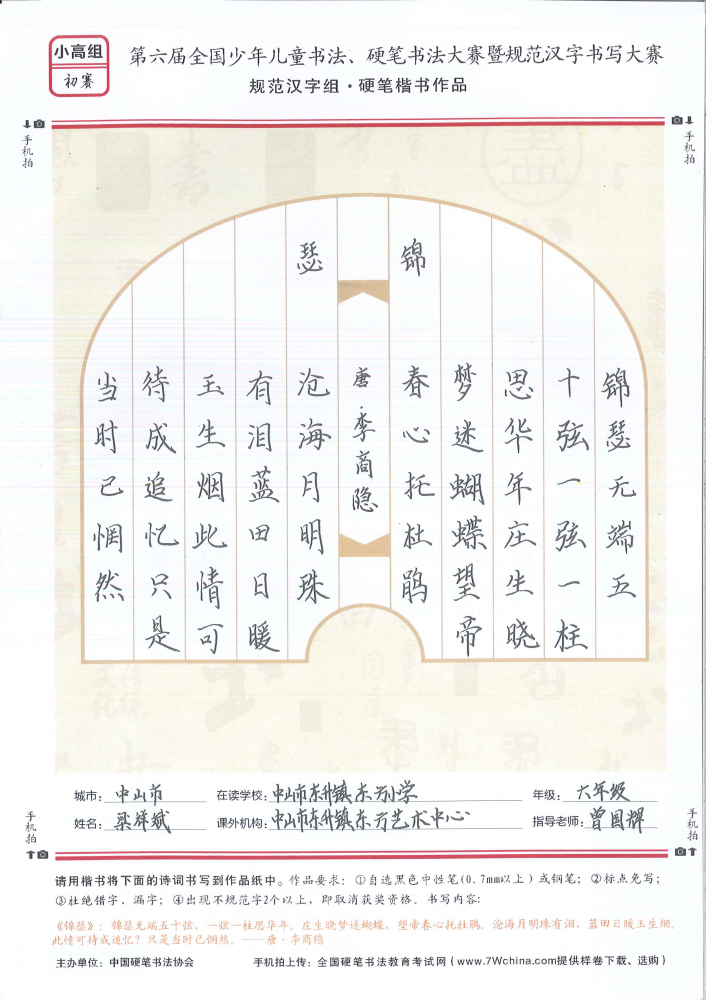 小高组
初赛
第六届全国少年儿童书法、硬笔书法大赛暨规范汉字书写大赛
规范汉字组·硬笔楷书作品
手机拍
手机拍
锦
瑟
锦瑟无端五
十弦一弦一柱
思华年庄生晓
梦迷蝴蝶望帝
春心托杜鹃
唐·李商隐
沧海月明珠
有泪蓝田日暖
玉生烟此情可
待成追忆只是
当时已惘然
城市：中山市
在读学校：中山市东升镇东方小学
年级：六年级
姓名：梁祥斌
课外机构：中山市东升镇东方艺术中心
指导老师：曾国辉
手机拍
手机拍
请用楷书将下面的诗词书写到作品纸中。作品要求：①自选黑色中性笔(0.7mm以上)或钢笔；②标点免写；
③杜绝错字、漏字；④出现不规范字2个以上，即取消获奖资格。书写内容：
《锦瑟》：锦瑟无端五十弦，一弦一柱思华年。庄生晓梦迷蝴蝶，望帝春心托杜鹃。沧海月明珠有泪，蓝田日暖玉生烟。
此情可待成追忆？只是当时已惘然。——唐·李商隐
主办单位：中国硬笔书法协会
手机拍上传：全国硬笔书法教育考试网（www.7Wchina.com提供样卷下载、选购）